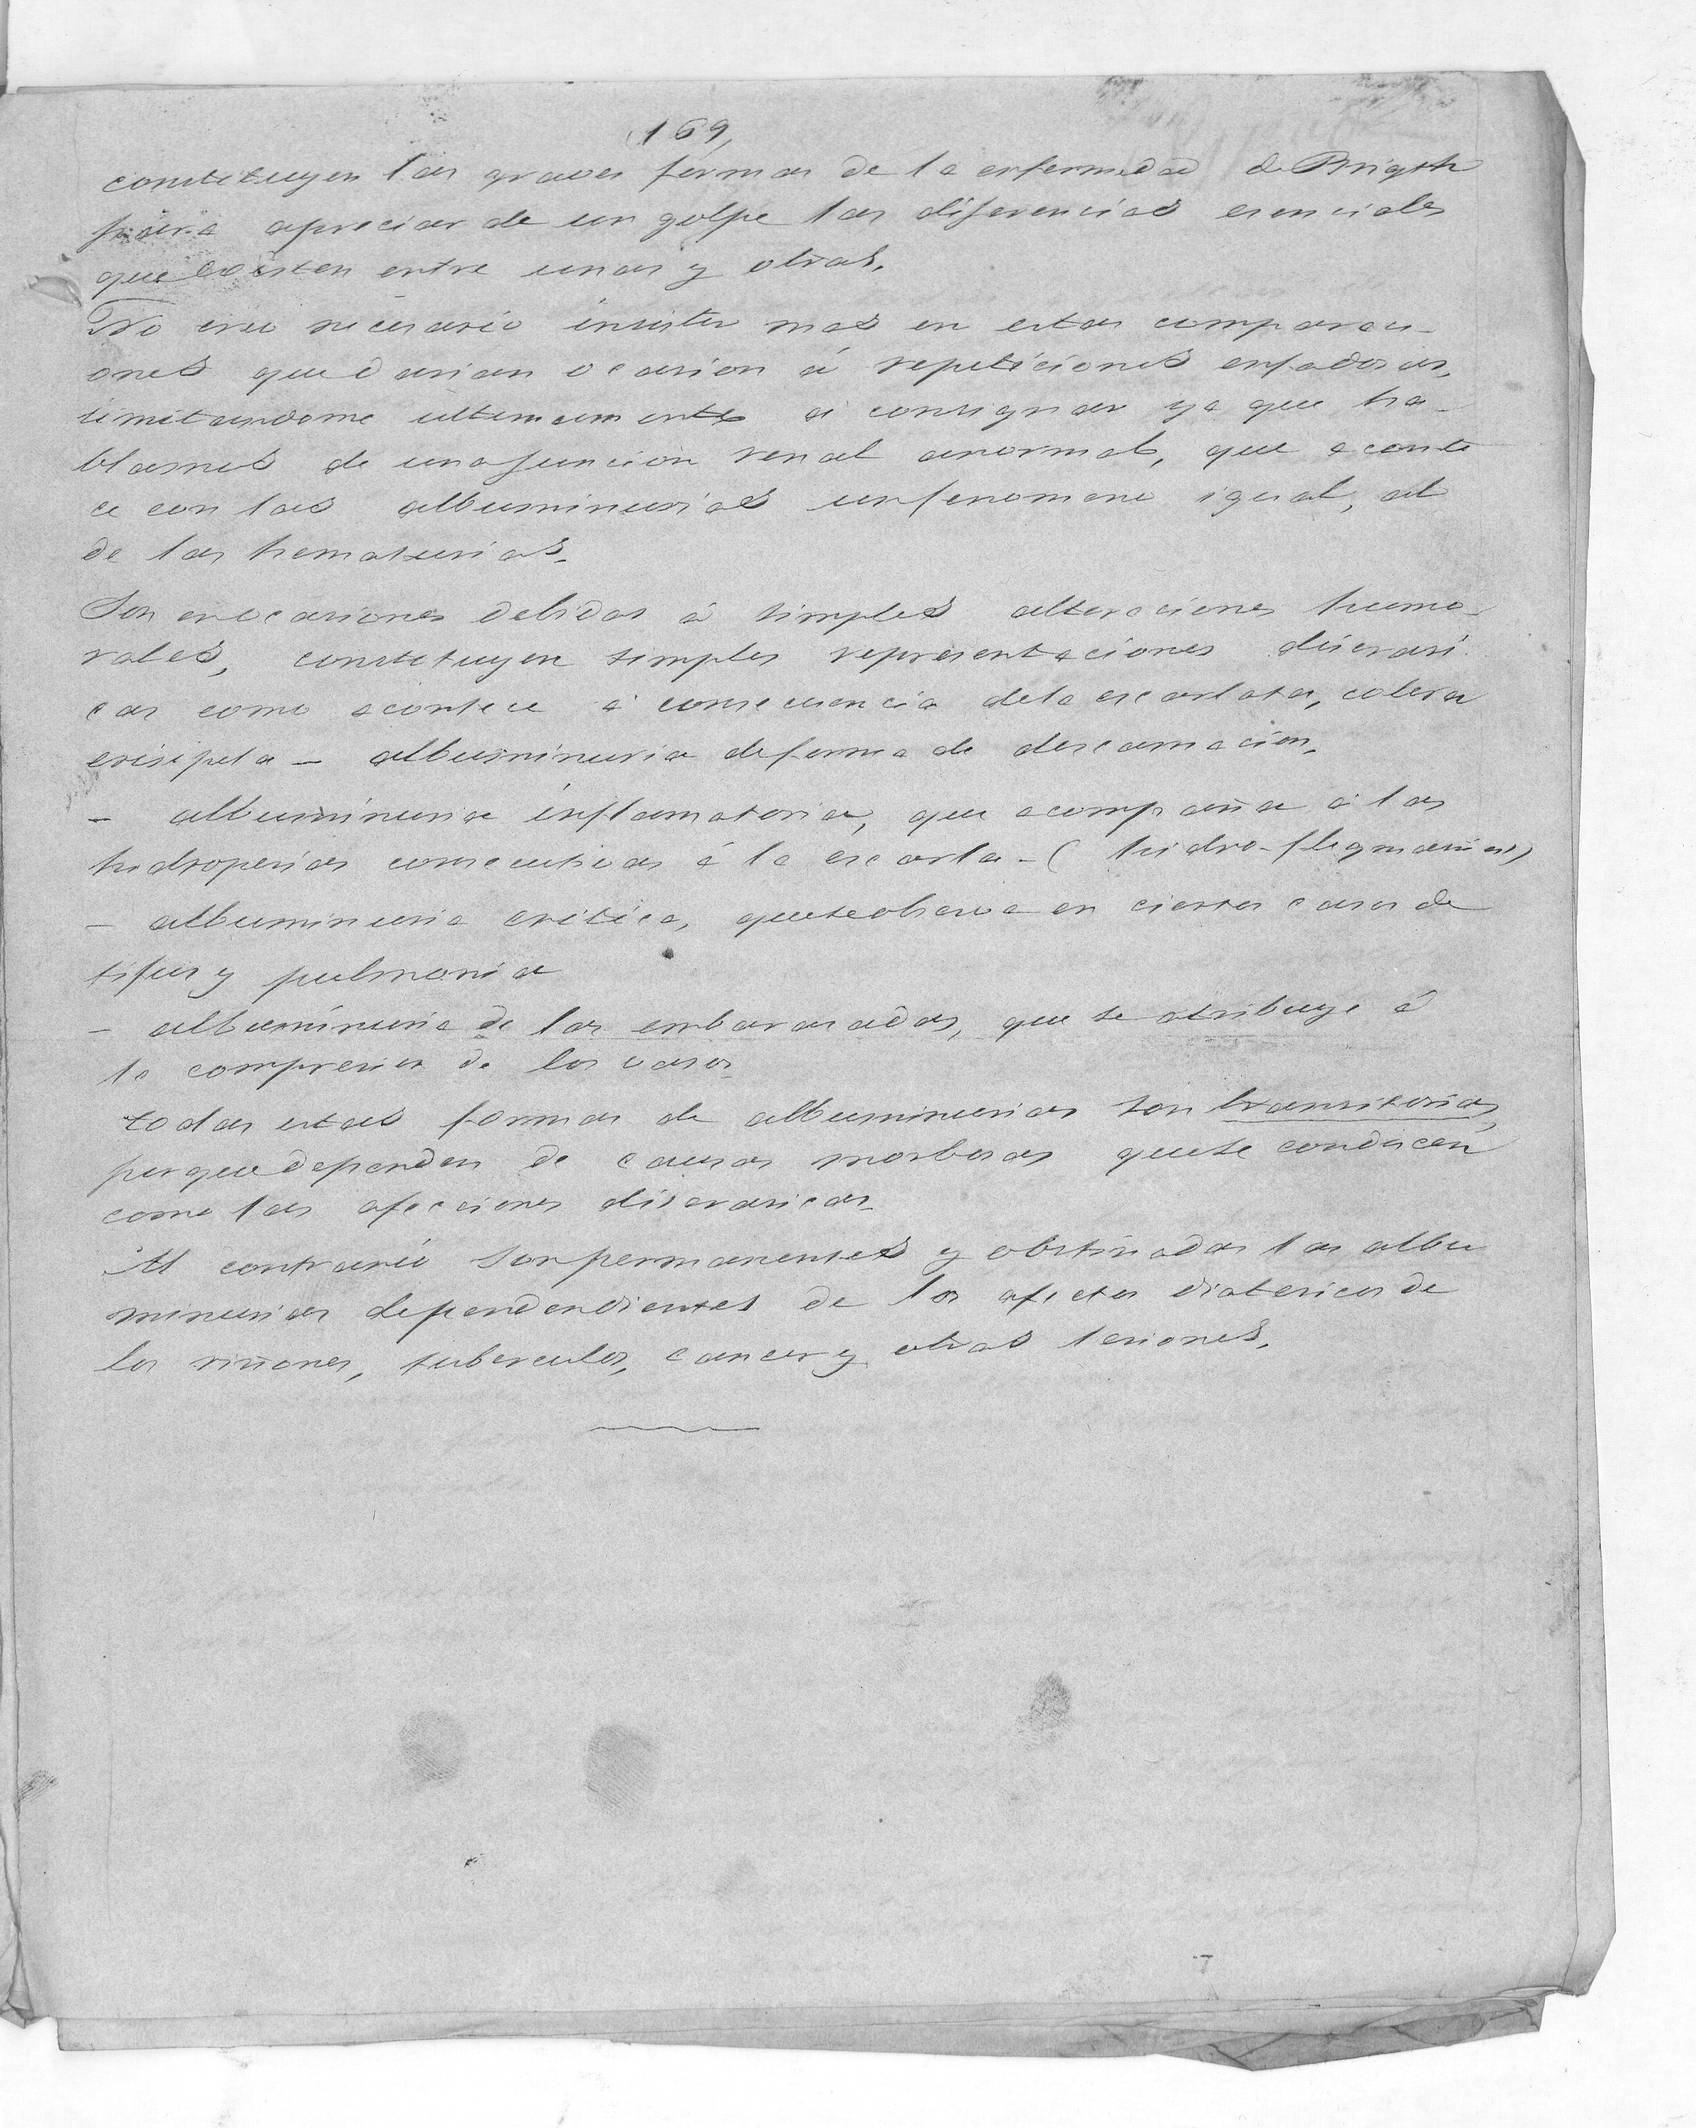 169,
constituyen las graves formas de la enfermedad de Brigth
para apreciar de un golpe las diferencias esenciales
que existen entre unas y otras.
No creo necesario insistir mas en estas comparaci-
ones que darian ocasion á repeticiones enfadosas,
limitandome ultimamente á consignar ya que ha-
blamos de una funcion renal anormal, que aconte
ce con las albuminurias un fenomeno igual, al
de las hematurias.
Son en ocasiones debidas á simples alteraciones humo-
rales, constituyen simples representaciones discrasi
cas como acontece á consecuencia de la escarlata, colera
erisipela - albuminuria de forma de descamacion.
- albuminuria inflamatoria, que acompaña á las
hidropesias consecutivas á la escarla - (hidro-flegmasias)
- albuminuria critica, que se observa en ciertos casos de
tifus y pulmonia
- albuminuria de las embarasadas, que se atribuye á
la compresion de los vasos
todas estas formas de albuminurias son transitorias,
porque dependen de causas morbosas que se conducen
como las afecciones discrasicas.
Al contrario son permanentes y obstinadas las albu
minurias dependendientes de los afectos diatesicos de
los riñones, tuberculos, cancer y otras lesiones.